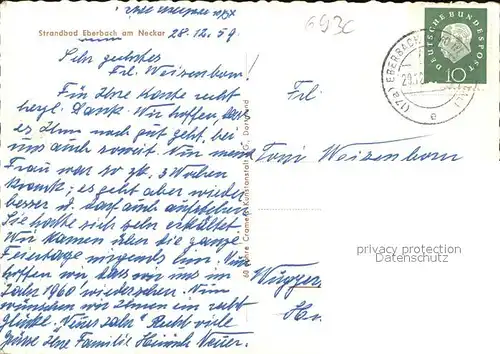 6930
Strandbad Eberbach am Neckar
28.12.59
Sehr geehrtes
Frl. Weizenborn!
Für Ihre Karte recht
herzl. Dank. Wir hoffen, daß
es Ihnen noch gut geht, bei
uns auch soweit. Nur meine
Frau war so 3 Wochen
krank, es geht aber wieder
besser u. darf auch aufstehen
Sie hatte sich sehr erkältet
Wir kamen über die ganze
Feiertage nirgends hin. Nun
hoffen wir das wir uns im
Jahr 1960 wiedersehen. Nun
wünschen wir Ihnen ein recht
Glückl. "Neues Jahr" Recht viele
Grüsse Ihre Familie Heinrich
60 Jahre Cramers Kunstanstalt KG., Dortmund
DEUTSCHE BUNDESPOST
10
(17a) EBERBACH
29.12
e
Frl.
Toni Weizenborn
privacy protection
Datenschutz